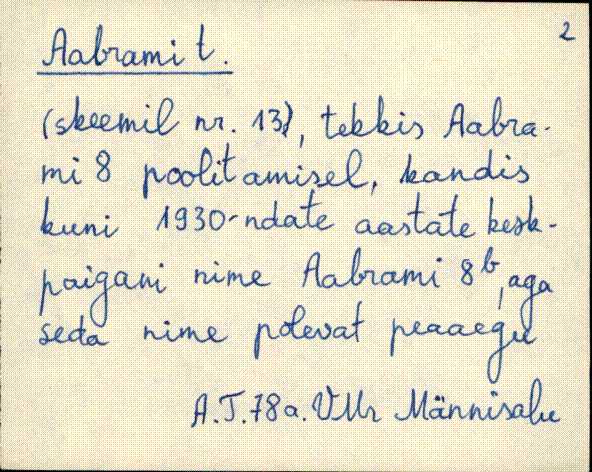 2
Aabrami t.
(skeemil nr. 13), tekkis Aabra-
mi 8 poolitamisel, kandis
kuni 1930-ndate aastate kesk-
paigani nime Aabrami 8b, aga
seda nime polevat peaaegu
A.T. 78a. VMr Männisalu